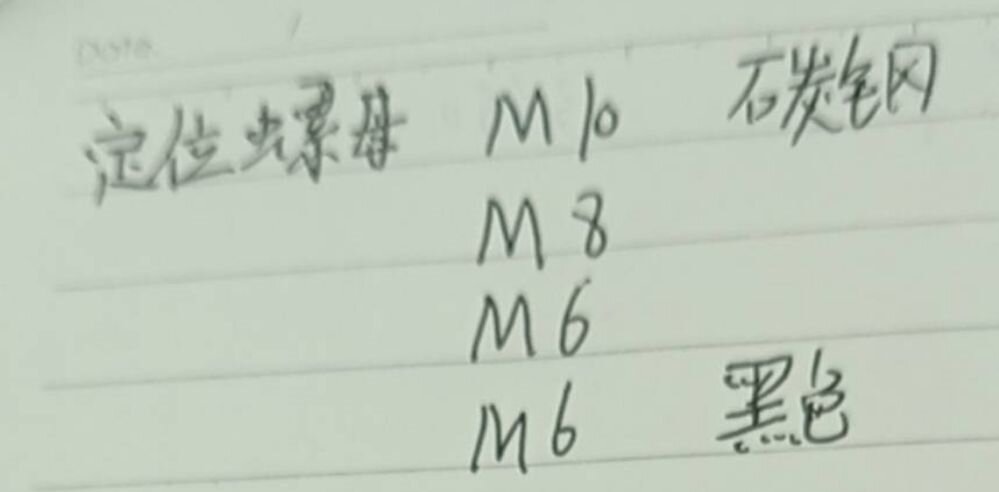 Date /
定位螺母 M10 石炭钢
M8
M6
M6 黑色